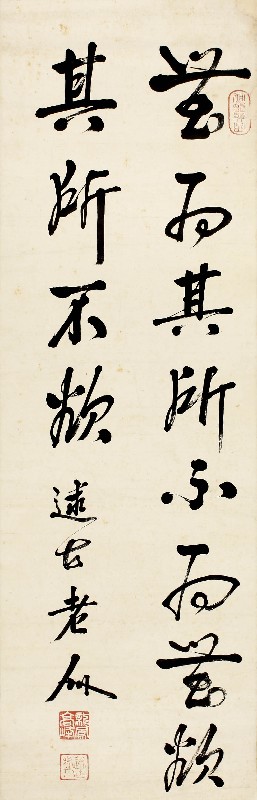 無為其所不為無欲
其所不欲 遠古老人